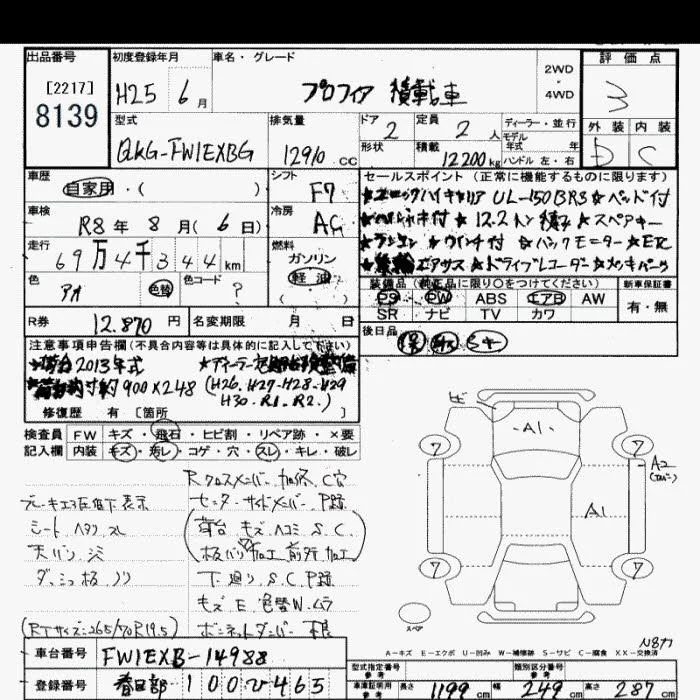 出品番号
[2217]
8139
初度登録年月
H25 6月
車名・グレード
プロフィア 積載車
2WD
・
4WD
評価点
3
外装 内装
D C
型式
QKG-FW1EXBG
排気量
12910 cc
ドア
2
形状
定員
2 人
積載
12200 kg
ディーラー・並行
モデル
年式 年
ハンドル 左・右
車歴
自家用・( )
シフト
F7
車検
R8年 8月(6日)
冷房
AC
走行
69万4千344km
燃料
ガソリン
軽油
色
アオ
色替
色コード
?
R券
12,870円
名変期限 月 日
セールスポイント (正常に機能するものに限ります)
UL-150BRS★ベッド付
★スペアキー
★ウインチ付 ★バックモニター★ETC
エアサス★ドライブレコーダー★メッキパーツ
装備品 (純正品に限り○をつけてください)
PS PW ABS エアB AW
SR ナビ TV カワ
新車保証書
有・無
後日品
注意事項申告欄(不具合内容等は具体的に記入して下さい)
★荷台2013年式
約900×248 (H26.H27.H28.H29
H30.R1.R2.)
修復歴 有 [箇所
検査員 FW キズ・飛石・ヒビ割・リペア跡・×要
記入欄 内装 キズ・汚レ・コゲ・穴・スレ・キレ・破レ
Rクロスメンバー加修 C穴
ブレーキエア圧低下表示
センターサイドメンバー P跡
シート ヘタリ スレ
(荷台 キズ ヘコミ S.C.
天バリ シミ
板バリ加工 加工)
ダッシュ板 ノリ
下廻り S.C P跡
キズ E. 色替W.ムラ
(RTサイズ:265/70R19.5)
ボンネットダンパー 不良
7
A1
7
A2
A1
7
7
スペア
A-キズ E-エクボ U-凹み W-補修跡 S-サビ C-腐食 XX-交換済
車台番号
FW1EXB-14988
登録番号
春日部 100 ひ 465
型式指定番号
参考
類別区分番号
参考
車庫証明用
参考
長さ 1199 cm 幅 249 cm 高さ 287 cm